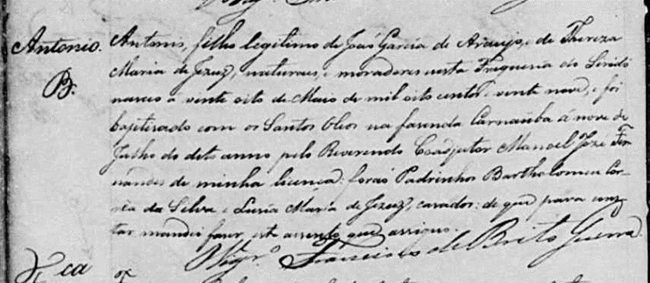 Antonio. Antonio, filho legitimo de José Garcia de Araujo, e de Thereza
B. Maria de Jezuz, naturaes, e moradores nesta Freguezia do Seridó
nasceo a vinte oito de Maio de mil oito centos e vinte nove, e foi
baptizado com os Santos Oleos na fazenda Carnauba á nove de
Julho do dito anno pelo Reverendo Coadjutor Manoel Joze Fer-
nandes de minha licença: foraõ Padrinhos Bartholomeu Cor-
rêa da Silva e Luzia Maria de Jezuz, cazados: de que para cons-
tar mandei fazer este assento, que assigno.
Vigr.º Francisco de Brito Guerra